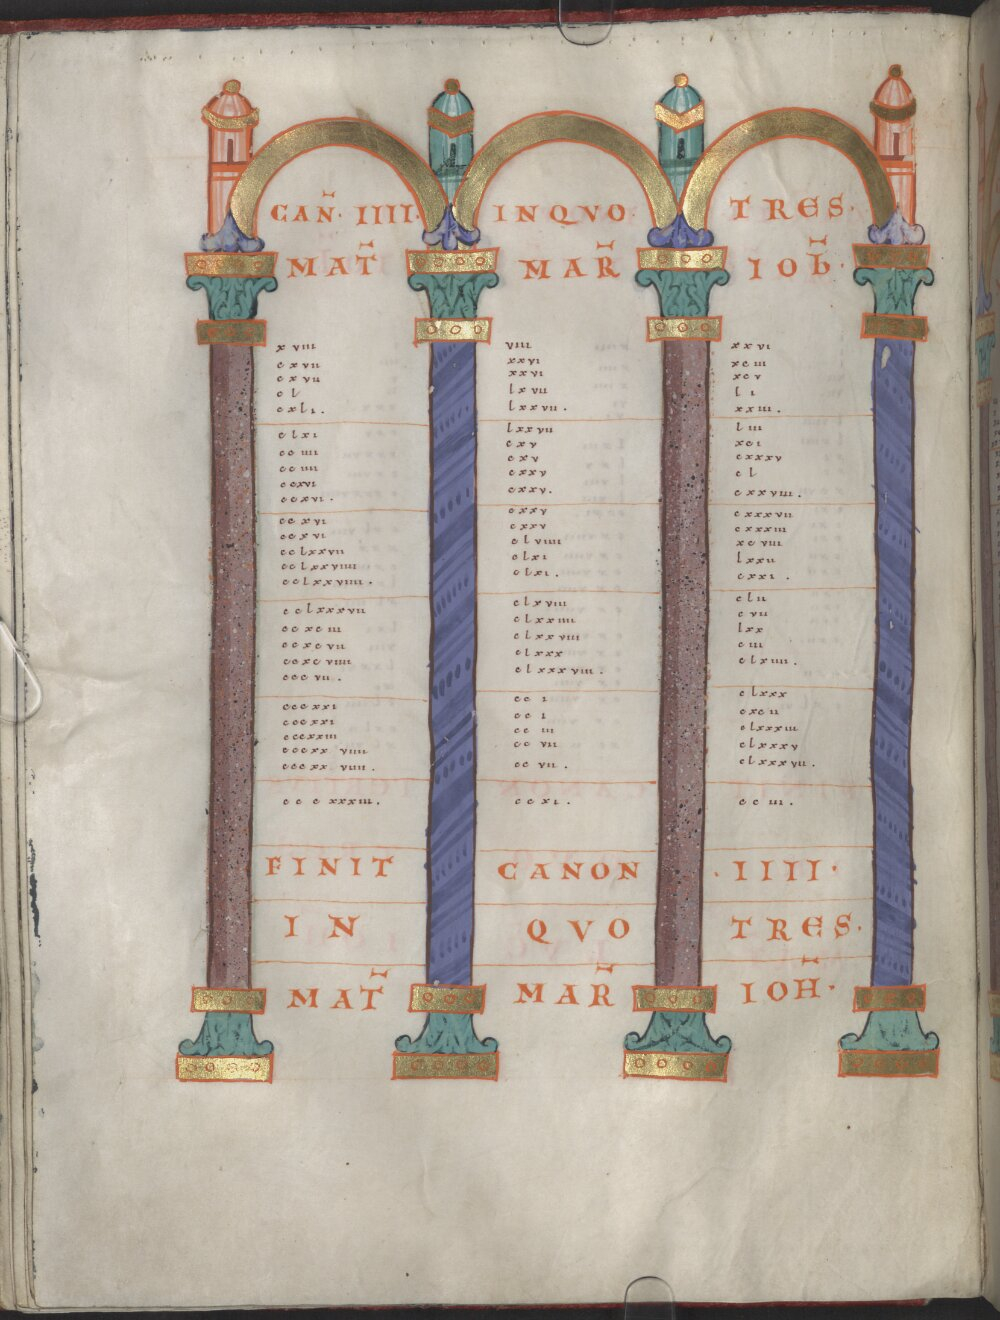 CAÑ · IIII · INQVO TRES ·
MAT̄ MAR̄ IOħ ·
xviii viiii xxvi
cxvii xxvi xciii
cxvii xxvi xcv
cl lxvii li
cxli . lxxvii . xxiii .
clxi lxxvii liii
cciiii cxv xci
cciiii cxv cxxxv
ccxvi cxxv cl
ccxvi . cxxv . cxxviii .
ccxvi cxxv cxxxvii
ccxvi cxxv cxxxiii
cclxxvii clviiii xcviii
cclxxviiii clxi lxxii
cclxxviiii . clxi . cxxi .
cclxxxvii clxviii clii
ccxciii clxxiiii cvii
ccxcvii clxxviii lxx
ccxcviiii clxxx ciii
cccvii . clxxxviii . clxiiii .
cccxxi cci clxxx
cccxxi cci cxcii
cccxxiii cciii clxxxiii
cccxxviiii ccvii clxxxv
cccxxviiii . ccvii . clxxxvii .
cccxxxiii . ccxi . cciii .
FINIT CANON · IIII ·
IN QVO TRES ·
MAT̄ MAR̄ IOH̄ ·